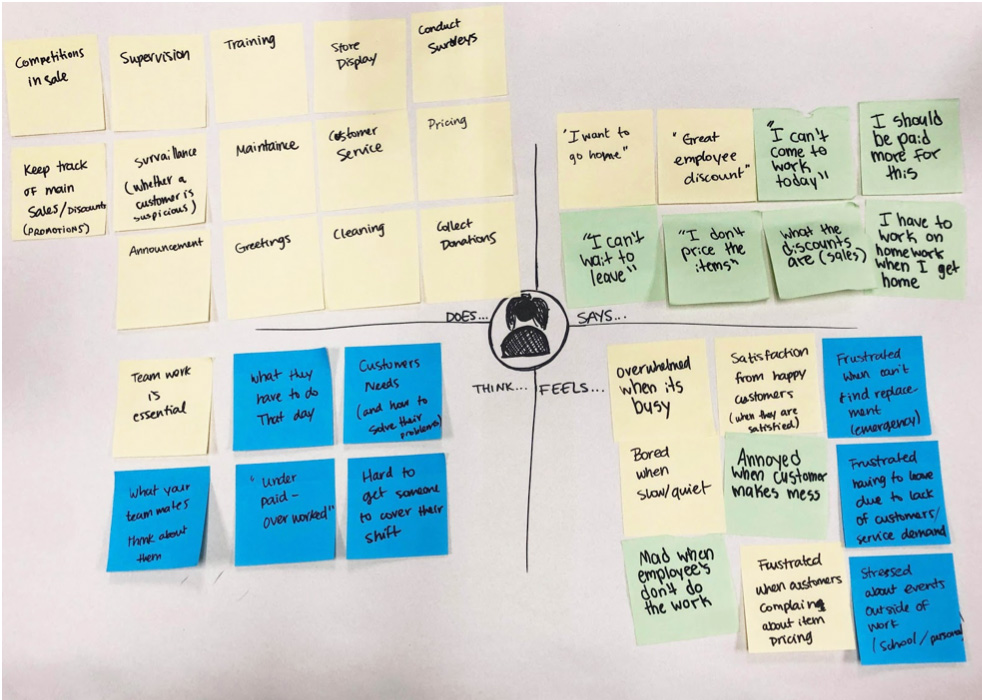 Competitions
in sale
Supervision
Training
Store
Display
Conduct
Surveys
Keep track
of main
Sales/Discounts
(PROMOTIONS)
Survaillance
(whether a
customer is
suspicious)
Maintaince
Customer
Service
Pricing
Announcement
Greetings
Cleaning
Collect
Donations
DOES...
"I want to
go home"
"Great
employee
discount"
"I can't
come to
work
today"
I should
be paid
more for
this
"I can't
wait to
leave"
"I don't
price the
items"
what the
discounts
are (sales)
I have to
work on
homework
when I get
home
SAYS...
THINK...
Team work
is
essential
what they
have to do
That day
Customers
Needs
(and how to
solve their
problems)
What your
team mates
think about
them
"under
paid -
over worked"
Hard to
get someone
to cover their
shift
FEELS...
overwhelmed
when its
busy
Satisfaction
from happy
customers
(when they are
satisfied)
Frustrated
when can't
find replace
ment
(emergency)
Bored
when
slow/quiet
Annoyed
when customer
makes mess
Frustrated
having to leave
due to lack
of customers/
service demand
Mad when
employee's
don't do
the work
Frustrated
when customers
complaing
about item
pricing
Stressed
about events
outside of
work
(school/personal)